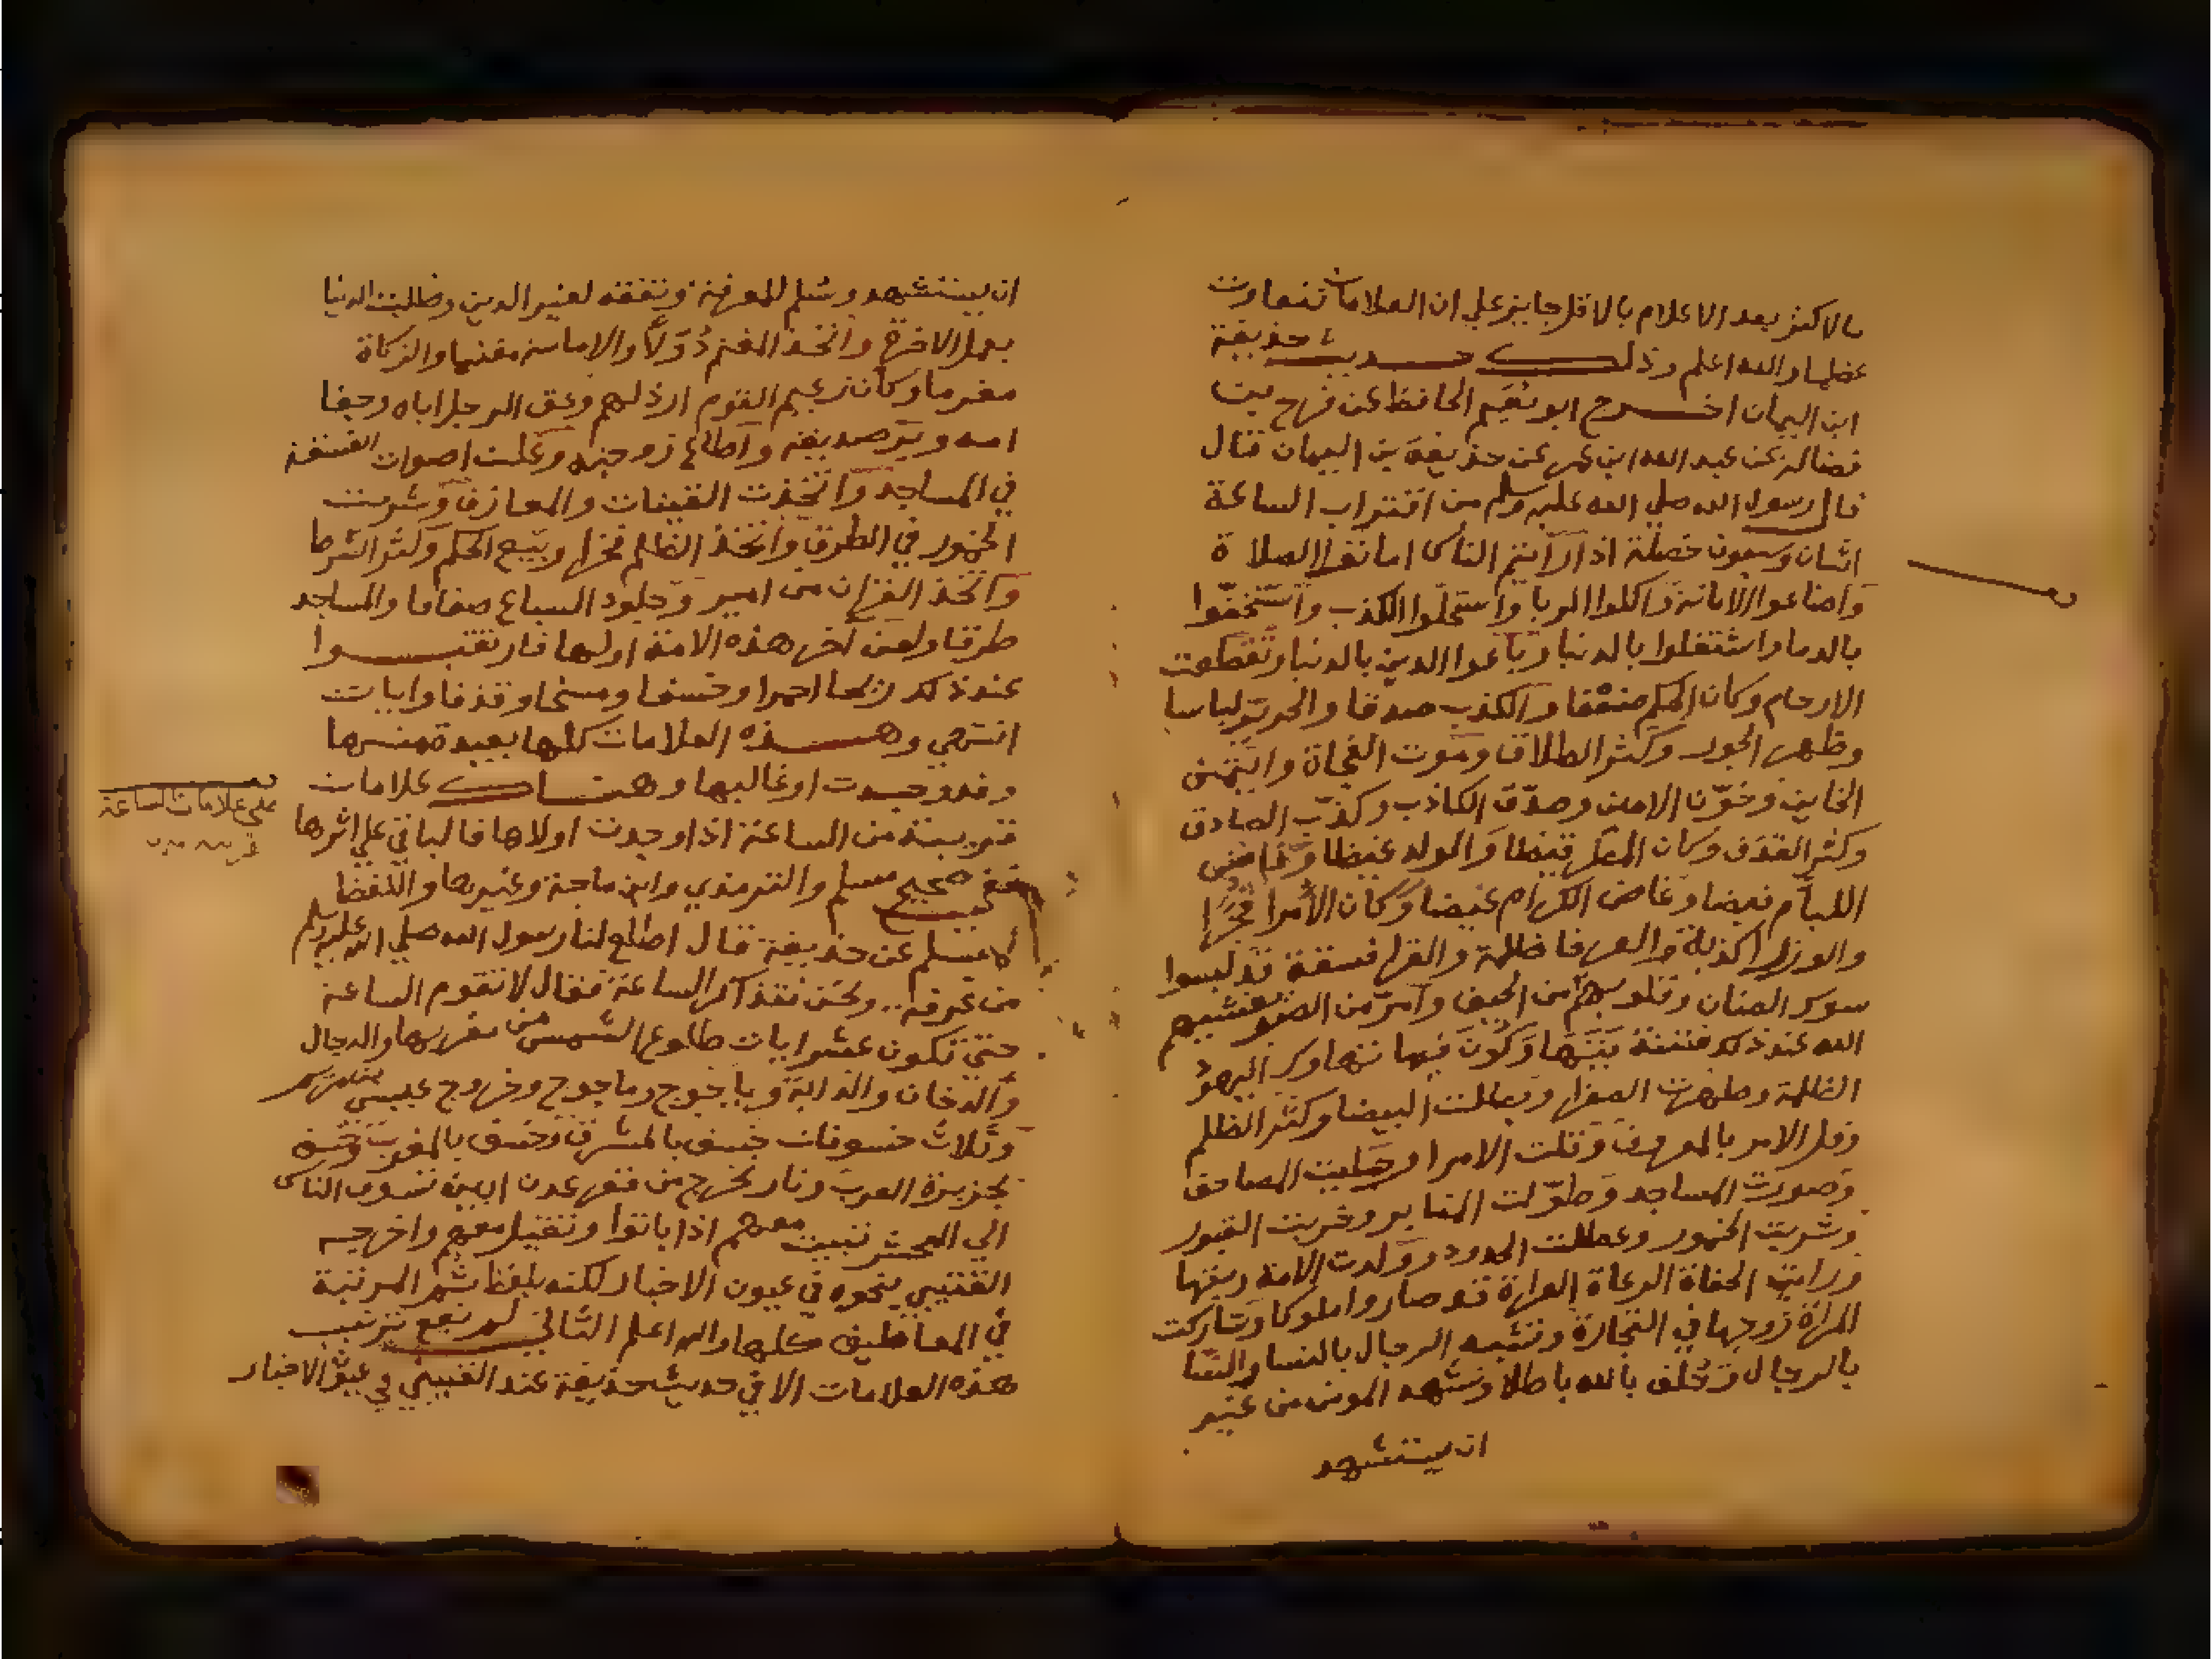 بالاكثر بعد الاعلام بالاقل جايز علي ان العلامات تتفاوت
عظما والله اعلم وذلك حديث حذيفة
ابن اليمان اخرج ابو نعيم الحافظ عن فرج بن
فضالة عن عبد الله ابن عن حذيفة بن اليمان قال
قال رسول الله صلي الله عليه وسلم من اقتراب الساعة
اثنان وسبعون خصلة اذا رايتم الناس اماتوا الصلاة
واضاعوا الامانة واكلوا الربا واستحلوا الكذب واستخفوا
بالدما واشتغلوا بالدنيا وباعوا الدين بالدنيا وتقطعت
الارحام وكان الحكم ضعفا والكذب صدقا والحرير لباسا
وظهر الجور وكثر الطلاق وموت الفجاة وايتمن
الخاين وخوّن الامين وصدّق الكاذب وكذّب الصادق
وكثر القذف وكان المطر قيظا والولد غيظا وفاض
الليام فيضا وغاض الكرام غيضا وكان الامرا
والوزرا كذبة والعرفا ظلمة والقرا فسقة قد لبسوا
سوك الضان وقلوبهم من الجيف وامرّ من الصبر يغشيهم
الله عند ذلك فتنة فيها تهاوك اليهود
الظلمة وظهرت الصفرا وتعاملت البيضا وكثر الظلم
وقل الامر بالمعروف وقلت الامرا وحليت المصاحف
وصورت المساجد وطوّلت المنابر وخربت القبور
وشربت الخمور وعطلت الحدود وولدت الامة ربتها
ورايت الحفاة الرعاة العراة قد صاروا ملوكا وشاركت
المراة زوجها في التجارة وتشبه الرجال بالنسا والنسا
بالرجال وحُلف بالله باطلا وشهد المومن من غير
ان يستشهد
ان يستشهد وسُلم للمعرفة وتفقه لغير الدين وطلبت الدنيا
بعمل الاخرة واتخذ المغنم دُوَلاً والامانة مغنما والزكاة
مغرما وكان زعيم القوم ارذلهم وعق الرجل اباه وجفا
امه وبرّ صديقه واطاع زوجته وعلت اصوات الفسقة
في المساجد واتخذت القينات والمعازف وشربت
الخمور في الطرق واتخذ الظلم فخرا وبيع الحكم وكثر الشرط
واتخذ القران مزامير وجلود السباع صفافا والمساجد
طرقا ولعن آخر هذه الامة اولها فارتقبوا
عند ذلك ريحا احمرا وخسفا ومسخا وقذفا وايات
انتهي وهذه العلامات كلها بعيدة منها
وقد وجدت او غالبها وهناك علامات
قريبة من الساعة اذا وجدت اولاها فالباقي علي اثرها
ففي صحيح مسلم والترمذي وابن ماجة وغيرها واللفظ
لمسلم عن حذيفة قال اطلع لنا رسول الله صلي الله عليه وسلم
من غرفة ونحن نتذاكر الساعة فقال لا تقوم الساعة
حتي تكون عشر ايات طلوع الشمس من مغربها والدجال
والدخان والدابة وياجوج وماجوج وخروج عيسي
وثلاث خسوفات خسف بالمشرق وخسف بالمغرب وخسف
بجزيرة العرب ونار تخرج من قعر عدن ابين تسوق الناس
الي المحشر تبيت معهم اذا باتوا وتقيل معهم واخرجه
القتيبي بنحوه في عيون الاخبار لكنه بلفظ ثم المرتبة
في المعاطيف كلها والله اعلم الثاني لم يقع ترتيب
هذه العلامات الا في حديث حذيفة عند القتيبي في عيون الاخبار
علي علامات الساعة